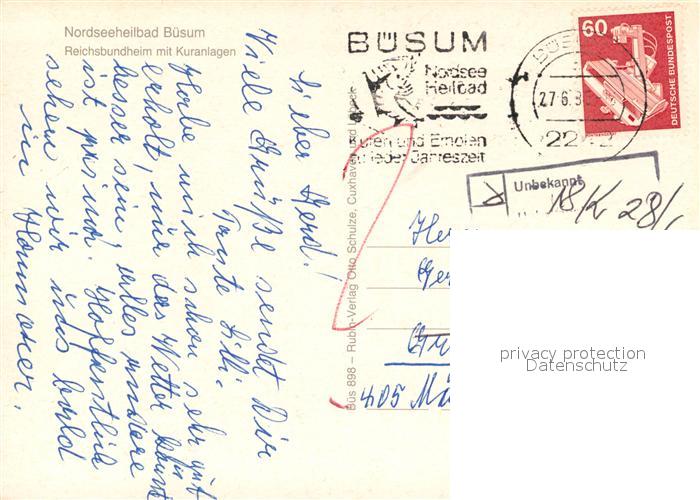 Nordseeheilbad Büsum
Reichsbundheim mit Kuranlagen
Lieber Gerd!
Viele Grüße sendet Dir
Tante Lilli.
Habe mich schon sehr gut
erholt, nur das Wetter könnte
besser sein, alles andere
ist prima. Hoffentlich
sehen wir uns bald
in Hannover.
Büs 898 – Rubin-Verlag Otto Schulze, Cuxhaven und Lübeck
BÜSUM
Nordsee
Heilbad
Kuren und Erholen
zu jeder Jahreszeit
27.6.8
2242
60
DEUTSCHE BUNDESPOST
Unbekannt
18/K 28/
He
Ger
405 Mö
privacy protection
Datenschutz